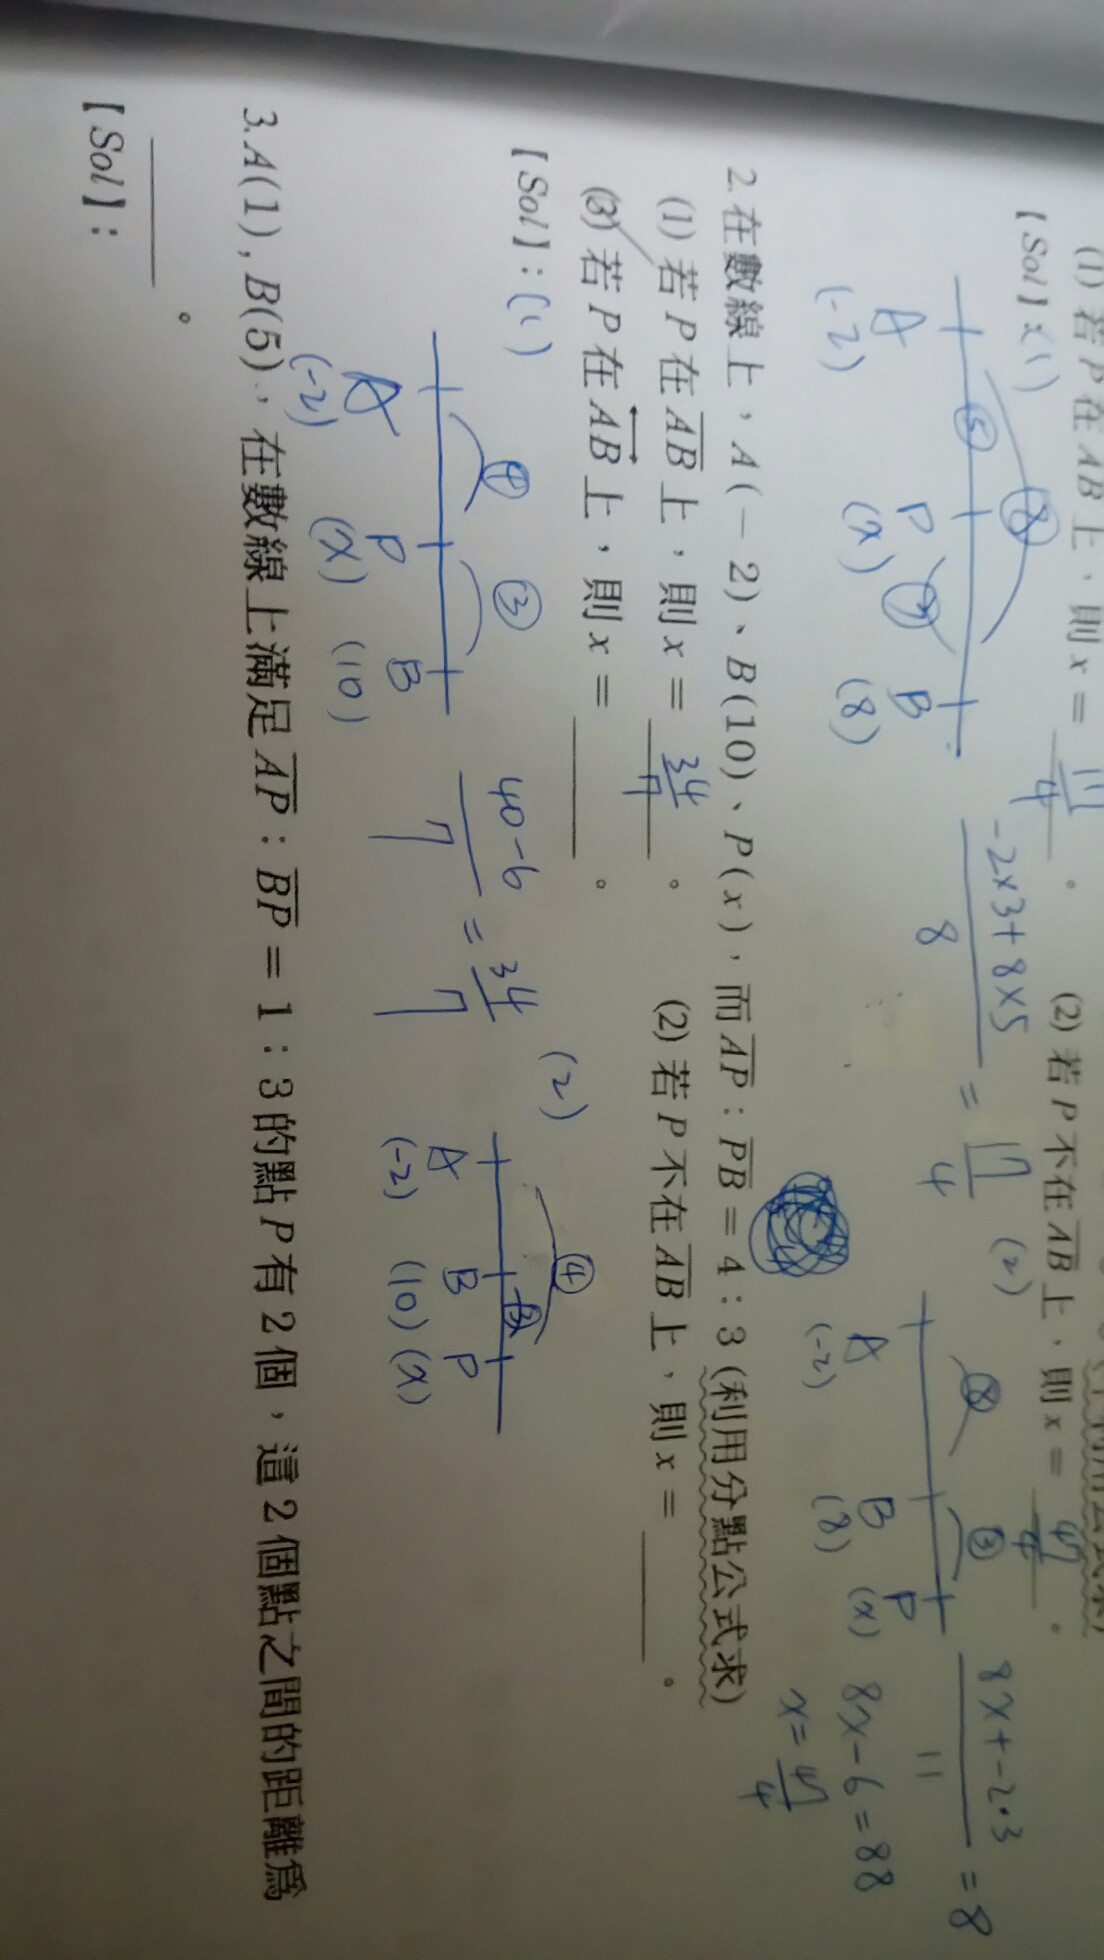 (1) 若 P 在 AB 上，則 x = 17/4 。 (2) 若 P 不在 AB 上，則 x = 47/4 。
【Sol】：(1)
⑧
⑤
A P B
(-2) (x) (8)
-2×3+8×5
8
= 17/4
(2)
⑧ ③
A B P
(-2) (8) (x)
8x+-2·3
11
= 8
8x-6=88
x=47/4
2.在數線上，A(－2)、B(10)、P(x)，而AP：PB＝4：3 (利用分點公式求)
(1) 若 P 在 AB 上，則 x = 34/7 。 (2) 若 P 不在 AB 上，則 x = ______ 。
(3) 若 P 在 AB 上，則 x = ______ 。
【Sol】：(1)
④ ③
A P B
(-2) (x) (10)
40-6
7
= 34/7
(2)
④
③
A B P
(-2) (10) (x)
3. A(1), B(5)，在數線上滿足 AP：BP＝1：3的點 P 有 2 個，這 2 個點之間的距離為
______ 。
【Sol】：